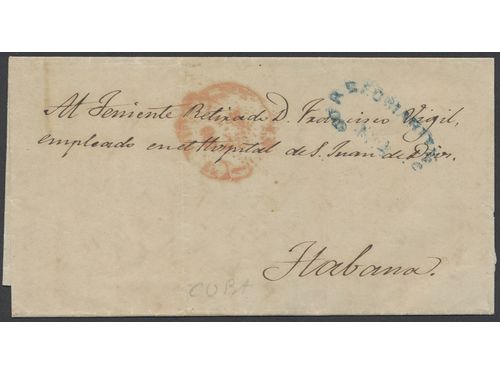 Al Teniente Retirado D. Francisco Vigil,
empleado en el Hospital de S. Juan de Dios.
Habana.
CUBA